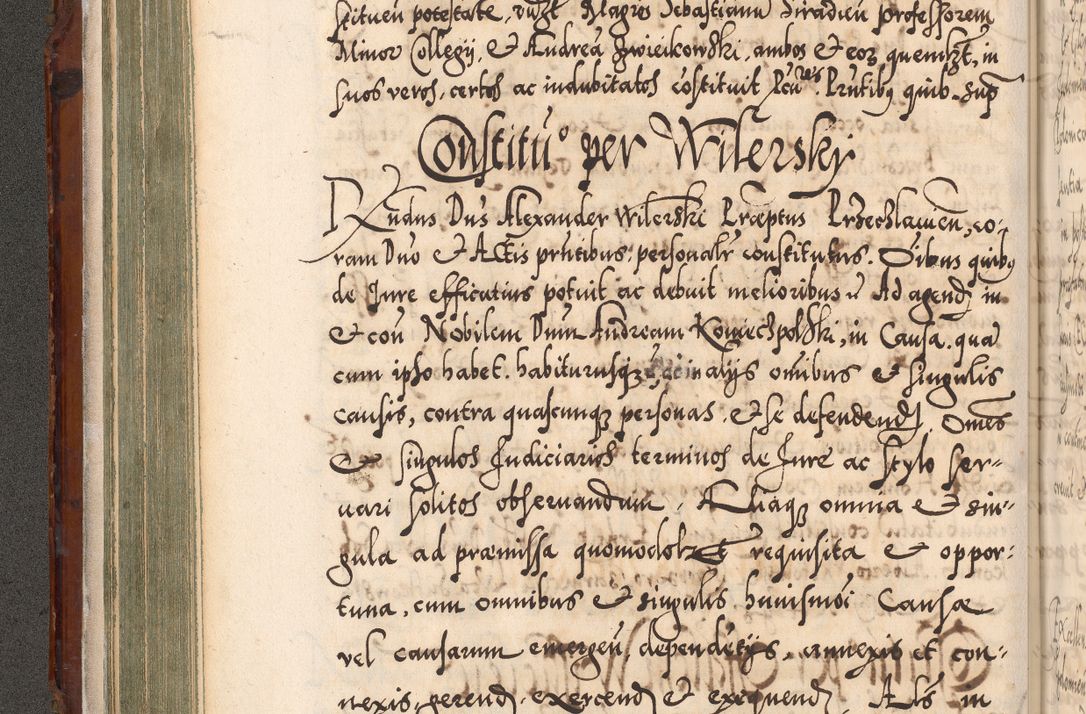 stituen potestate, vdzt Magros Sebastianu Siradien professorem
Minor Collegÿ, et Andrea Zwieikowski, ambos et eoz quemlzt, in
suos veros, certos ac indubitatos cōstituit Pcures. Prntibq quib. Sup
Constitũo per Wilersky
Rũdus Dũs Alexander Wilerski Præptus Przeczlawien, co-
ram Dũo et Actis prñtibus, personalr constitutus. Oibus quibq
de Jure efficatius potuit ac debuit melioribus ũ Ad agend in
et con Nobilem Dũm Andream Koniechpolski, in Causa. qua
cum ipso habet. habiturusqz alÿs omibus et singulis
causis, contra quascunqz personas. et se defendend, Omēs
et singulos Judiciarios terminos de Jure ac stylo ser-
uari solitos obseruandum, Aliaqz omnia et sin-
gula ad præmissa quomodolzt requisita et oppor-
tuna, cum omnibus et singulis huiusmõi Causæ
vel causarum emergeñ, depēdētÿs, annexis et con-
nexis, gerend, exercend et exequend, Als in